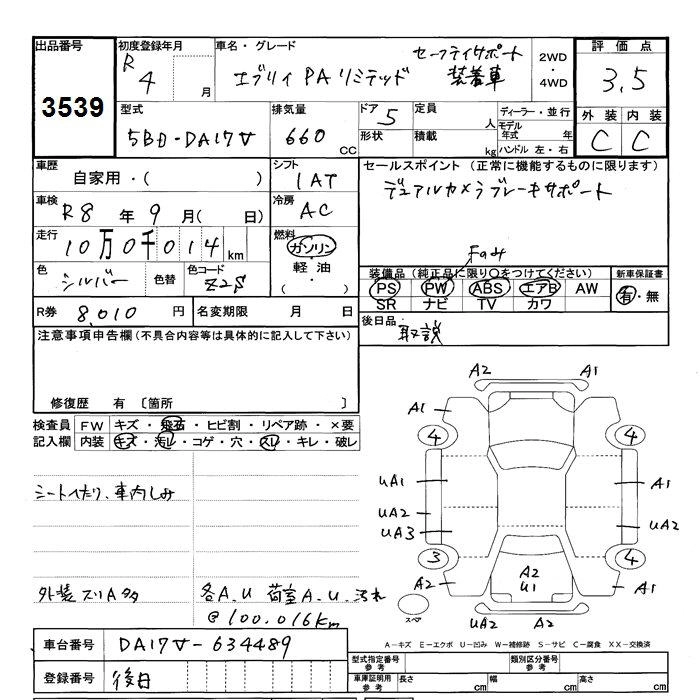 出品番号 3539
初度登録年月 R 4 月
車名・グレード エブリイ PA リミテッド セーフティサポート装着車
2WD・4WD
評価点 3.5
外装 内装
C C
型式 5BD-DA17V
排気量 660 CC
ドア 5 形状
定員 人 積載 kg
ディーラー・並行
モデル年式 年
ハンドル 左・右
車歴 自家用・( )
シフト 1AT
車検 R8 年 9 月( 日)
冷房 AC
走行 10万0千014 km
燃料 ガソリン・軽油・( )
色 シルバー 色替 色コード Z2S
R券 8,010 円 名変期限 月 日
セールスポイント(正常に機能するものに限ります)
デュアルカメラブレーキサポート
装備品(純正品に限り○をつけてください) 新車保証書
PS PW ABS エアB AW 有・無
SR ナビ TV カワ
後日品 取説
注意事項申告欄(不具合内容等は具体的に記入して下さい)
修復歴 有 〔箇所 〕
検査員記入欄 FW キズ・飛石・ヒビ割・リペア跡・×要
内装 キズ・汚レ・コゲ・穴・スレ・キレ・破レ
シートヘたり、車内しみ
外装スリA多 各A.U 荷室A.U.汚れ
@100.016km
A2 A1
A1
4 4
UA1 A1
UA2 UA2
UA3
3 4
A2 A2 U1 A1
スペア UA2 A2
A-キズ E-エクボ U-凹み W-補修跡 S-サビ C-腐食 XX-交換済
車台番号 DA17V-634489
登録番号 後日
型式指定番号 参考 類別区分番号 参考
車庫証明用 参考 長さ cm 幅 cm 高さ cm